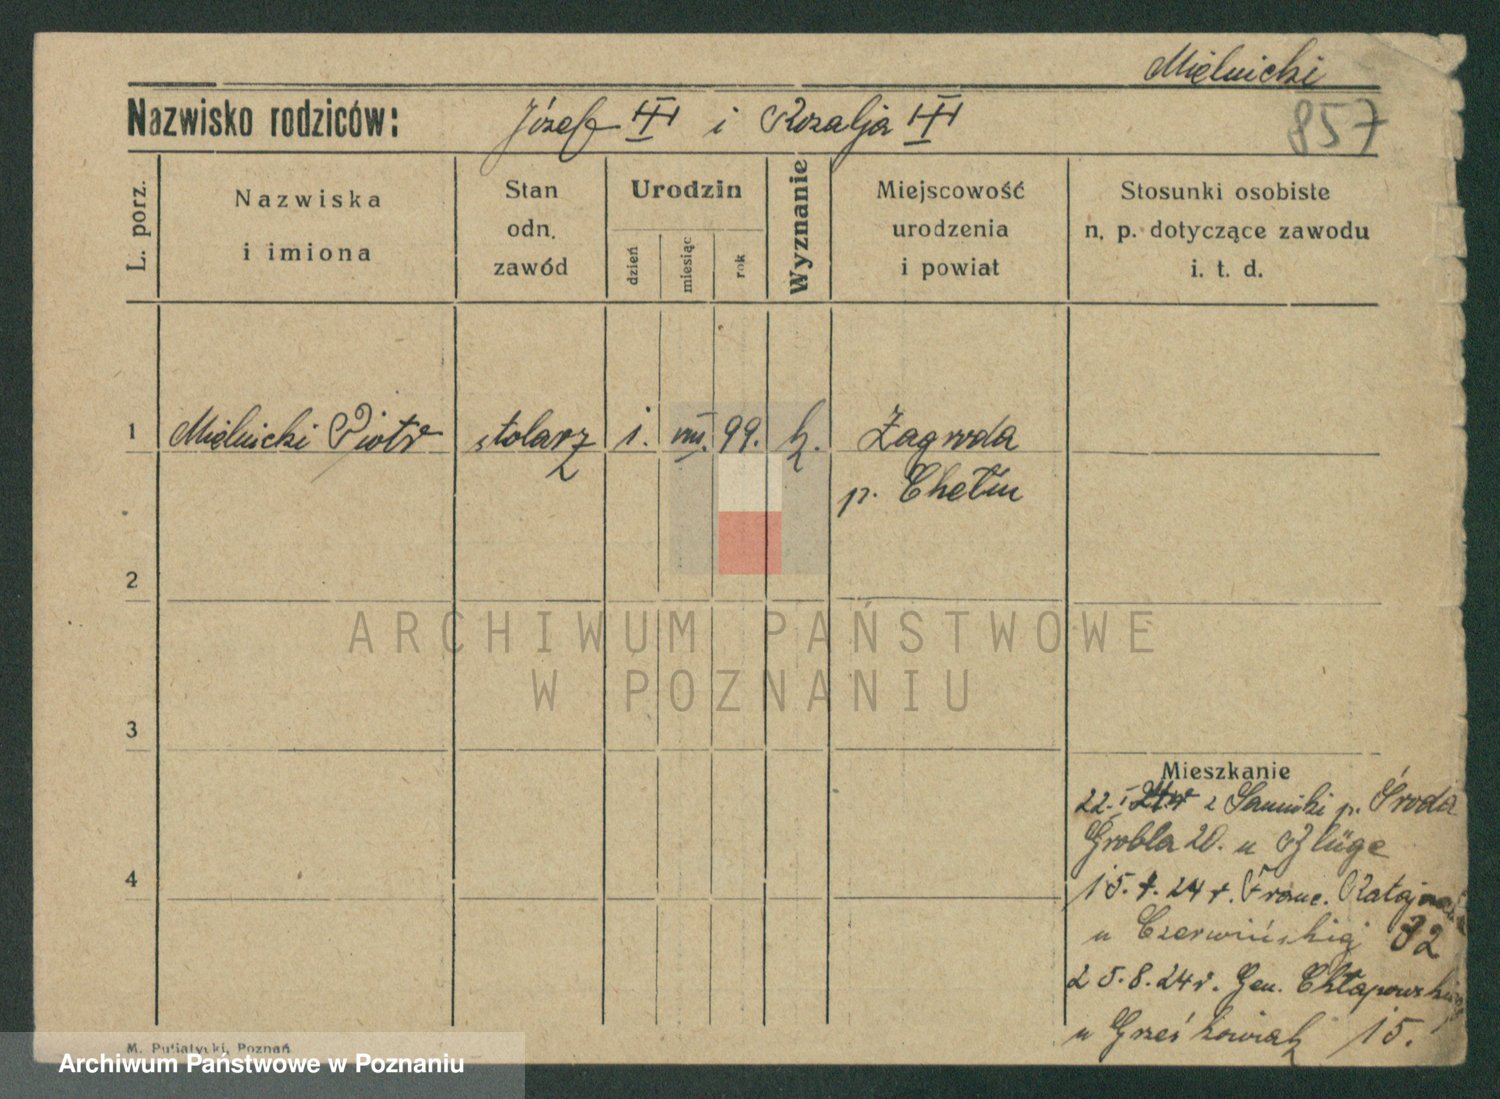 Mielnicki
Nazwisko rodziców: Józef i Rozalja
857
L. porz.
Nazwiska i imiona
Stan odn. zawód
Urodzin
dzień
miesiąc
rok
Wyznanie
Miejscowość urodzenia i powiat
Stosunki osobiste n. p. dotyczące zawodu i. t. d.
1 Mielnicki Piotr stolarz 1. VIII. 99. k. Zagroda
p. Chełm
2
3
4
Mieszkanie
22. z p. Środa
Grobla 20. u
15. 24 r. Franc. Ratajczaka
u Czerwińskiej 32
25.8.24 r. Gen. Chłapowskiego
u Grześkowiak 15.
M. Putiatycki, Poznań
ARCHIWUM PAŃSTWOWE
W POZNANIU
Archiwum Państwowe w Poznaniu